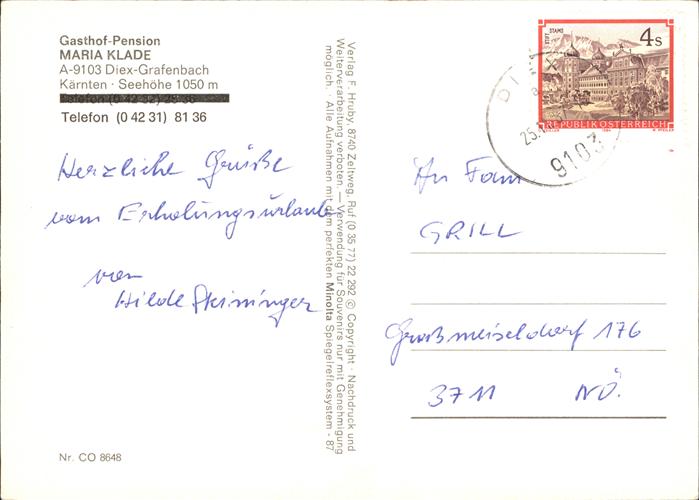 Gasthof-Pension
MARIA KLADE
A-9103 Diex-Grafenbach
Kärnten · Seehöhe 1050 m
Telefon (0 42 31) 81 36
Herzliche Grüße
vom Erholungsurlaub
von
Hilde
Nr. CO 8648
Verlag F. Hruby, 8740 Zeltweg, Ruf (0 35 77) 22 292 © Copyright · Nachdruck und
Weiterverarbeitung verboten. — Verwendung für Souvenirs nur mit Genehmigung
möglich. · Alle Aufnahmen mit dem perfekten Minolta Spiegelreflexsystem - 87
STIFT STAMS
4 S
REPUBLIK ÖSTERREICH
9103
An Fam.
GRILL
Großmeiseldorf 176
3711 NÖ.